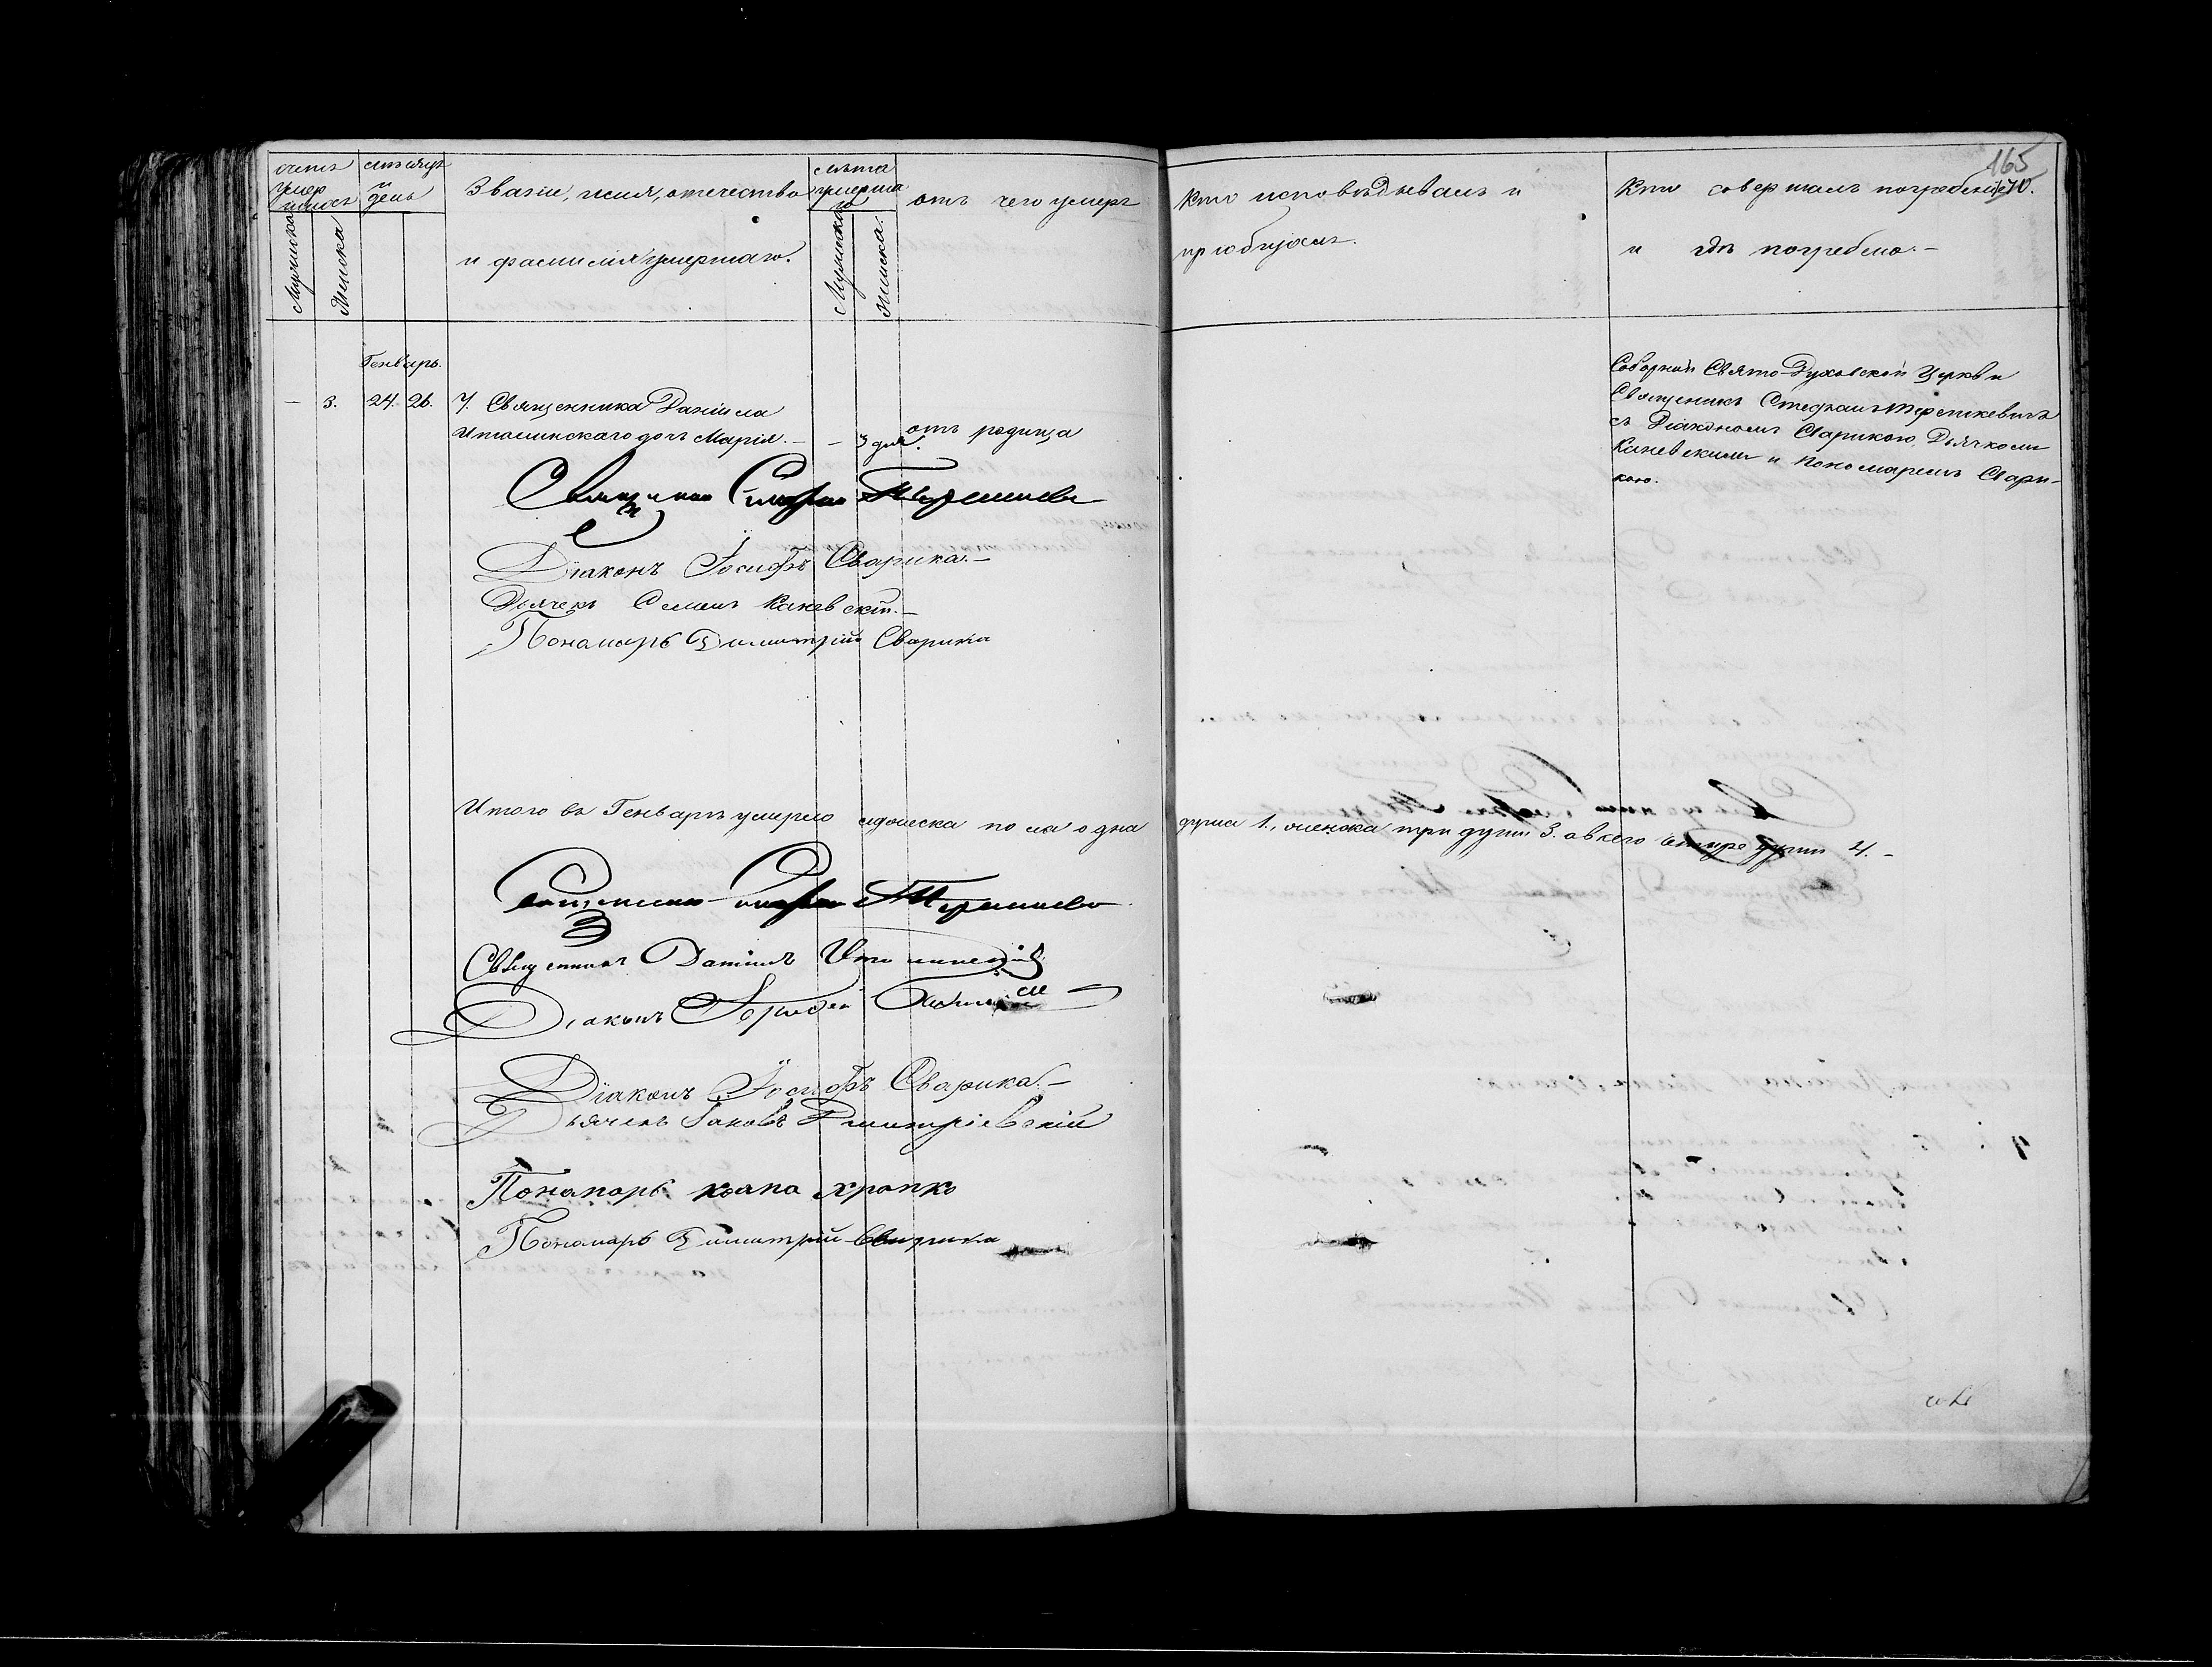 165
счетъ умер шихъ
Мужеска
Женска
мѣсяцъ и день
Званіе, имя, отечество
и фамилія умершаго.
лѣта умерша го
Мужеска
Женска.
отъ чего умеръ
Кто исповѣдывалъ и
пріобщалъ.
Кто совершалъ погребеніе
и гдѣ погребено. –
Генварь.
– 3. 24. 26. У Священника Даніила
дочь Марія. – – 3 дня. отъ родимца
Соборной Свято-Духовской Церкви
Священникъ Стефанъ
съ Діакономъ Сварикою, Дьячкомъ
Каневскимъ и Пономаремъ Свари-
кою.
Священникъ Стефанъ
Діаконъ Іосифъ Сварика. –
Дьячекъ Семенъ Каневскій. –
Пономарь Димитрій Сварика
Итого въ Генварѣ умерло мужеска пола одна душа 1., женска три души 3. а всего четыре души 4. –
Священникъ Стефанъ
Священникъ Даніилъ
Діаконъ
Діаконъ Іосифъ Сварика. –
Дьячекъ Іаковъ Дмитріевскій
Пономарь Храпко
Пономарь Димитрій Сварика